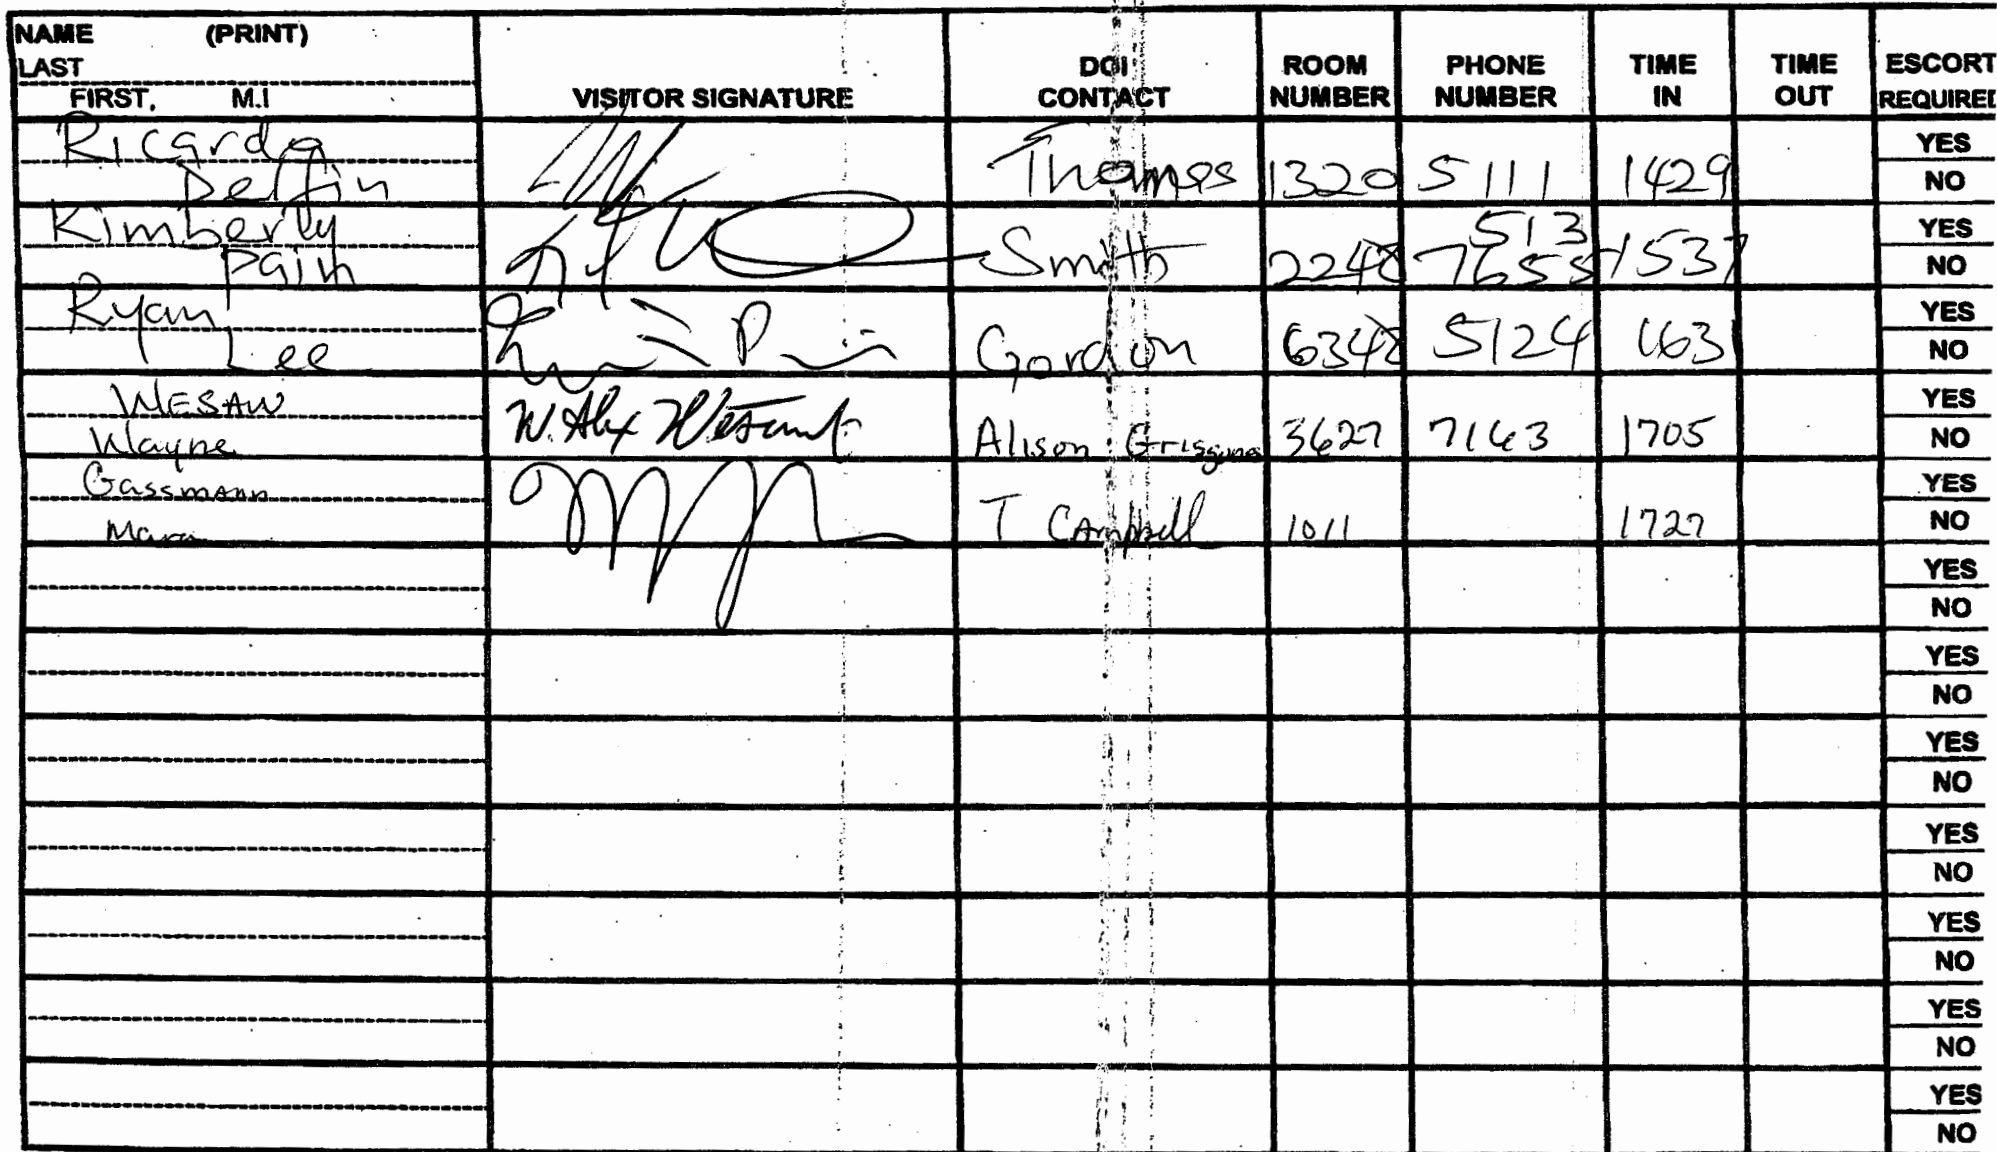 NAME (PRINT)
LAST
FIRST, M.I
VISITOR SIGNATURE
DOI CONTACT
ROOM NUMBER
PHONE NUMBER
TIME IN
TIME OUT
ESCORT REQUIRED
Ricardo
Delfin
Thomas 1320 5111 1429
YES
NO
Kimberly
Pain
Smith 2248 513 7655 1537
YES
NO
Ryan
Lee
Gordon 6348 5124 1631
YES
NO
WESAW
Wayne
W. Alex Wesaw Alison Grisgnas 3627 7163 1705
YES
NO
Gassmann
Mara
T Campbell 1011 1727
YES
NO
YES
NO
YES
NO
YES
NO
YES
NO
YES
NO
YES
NO
YES
NO